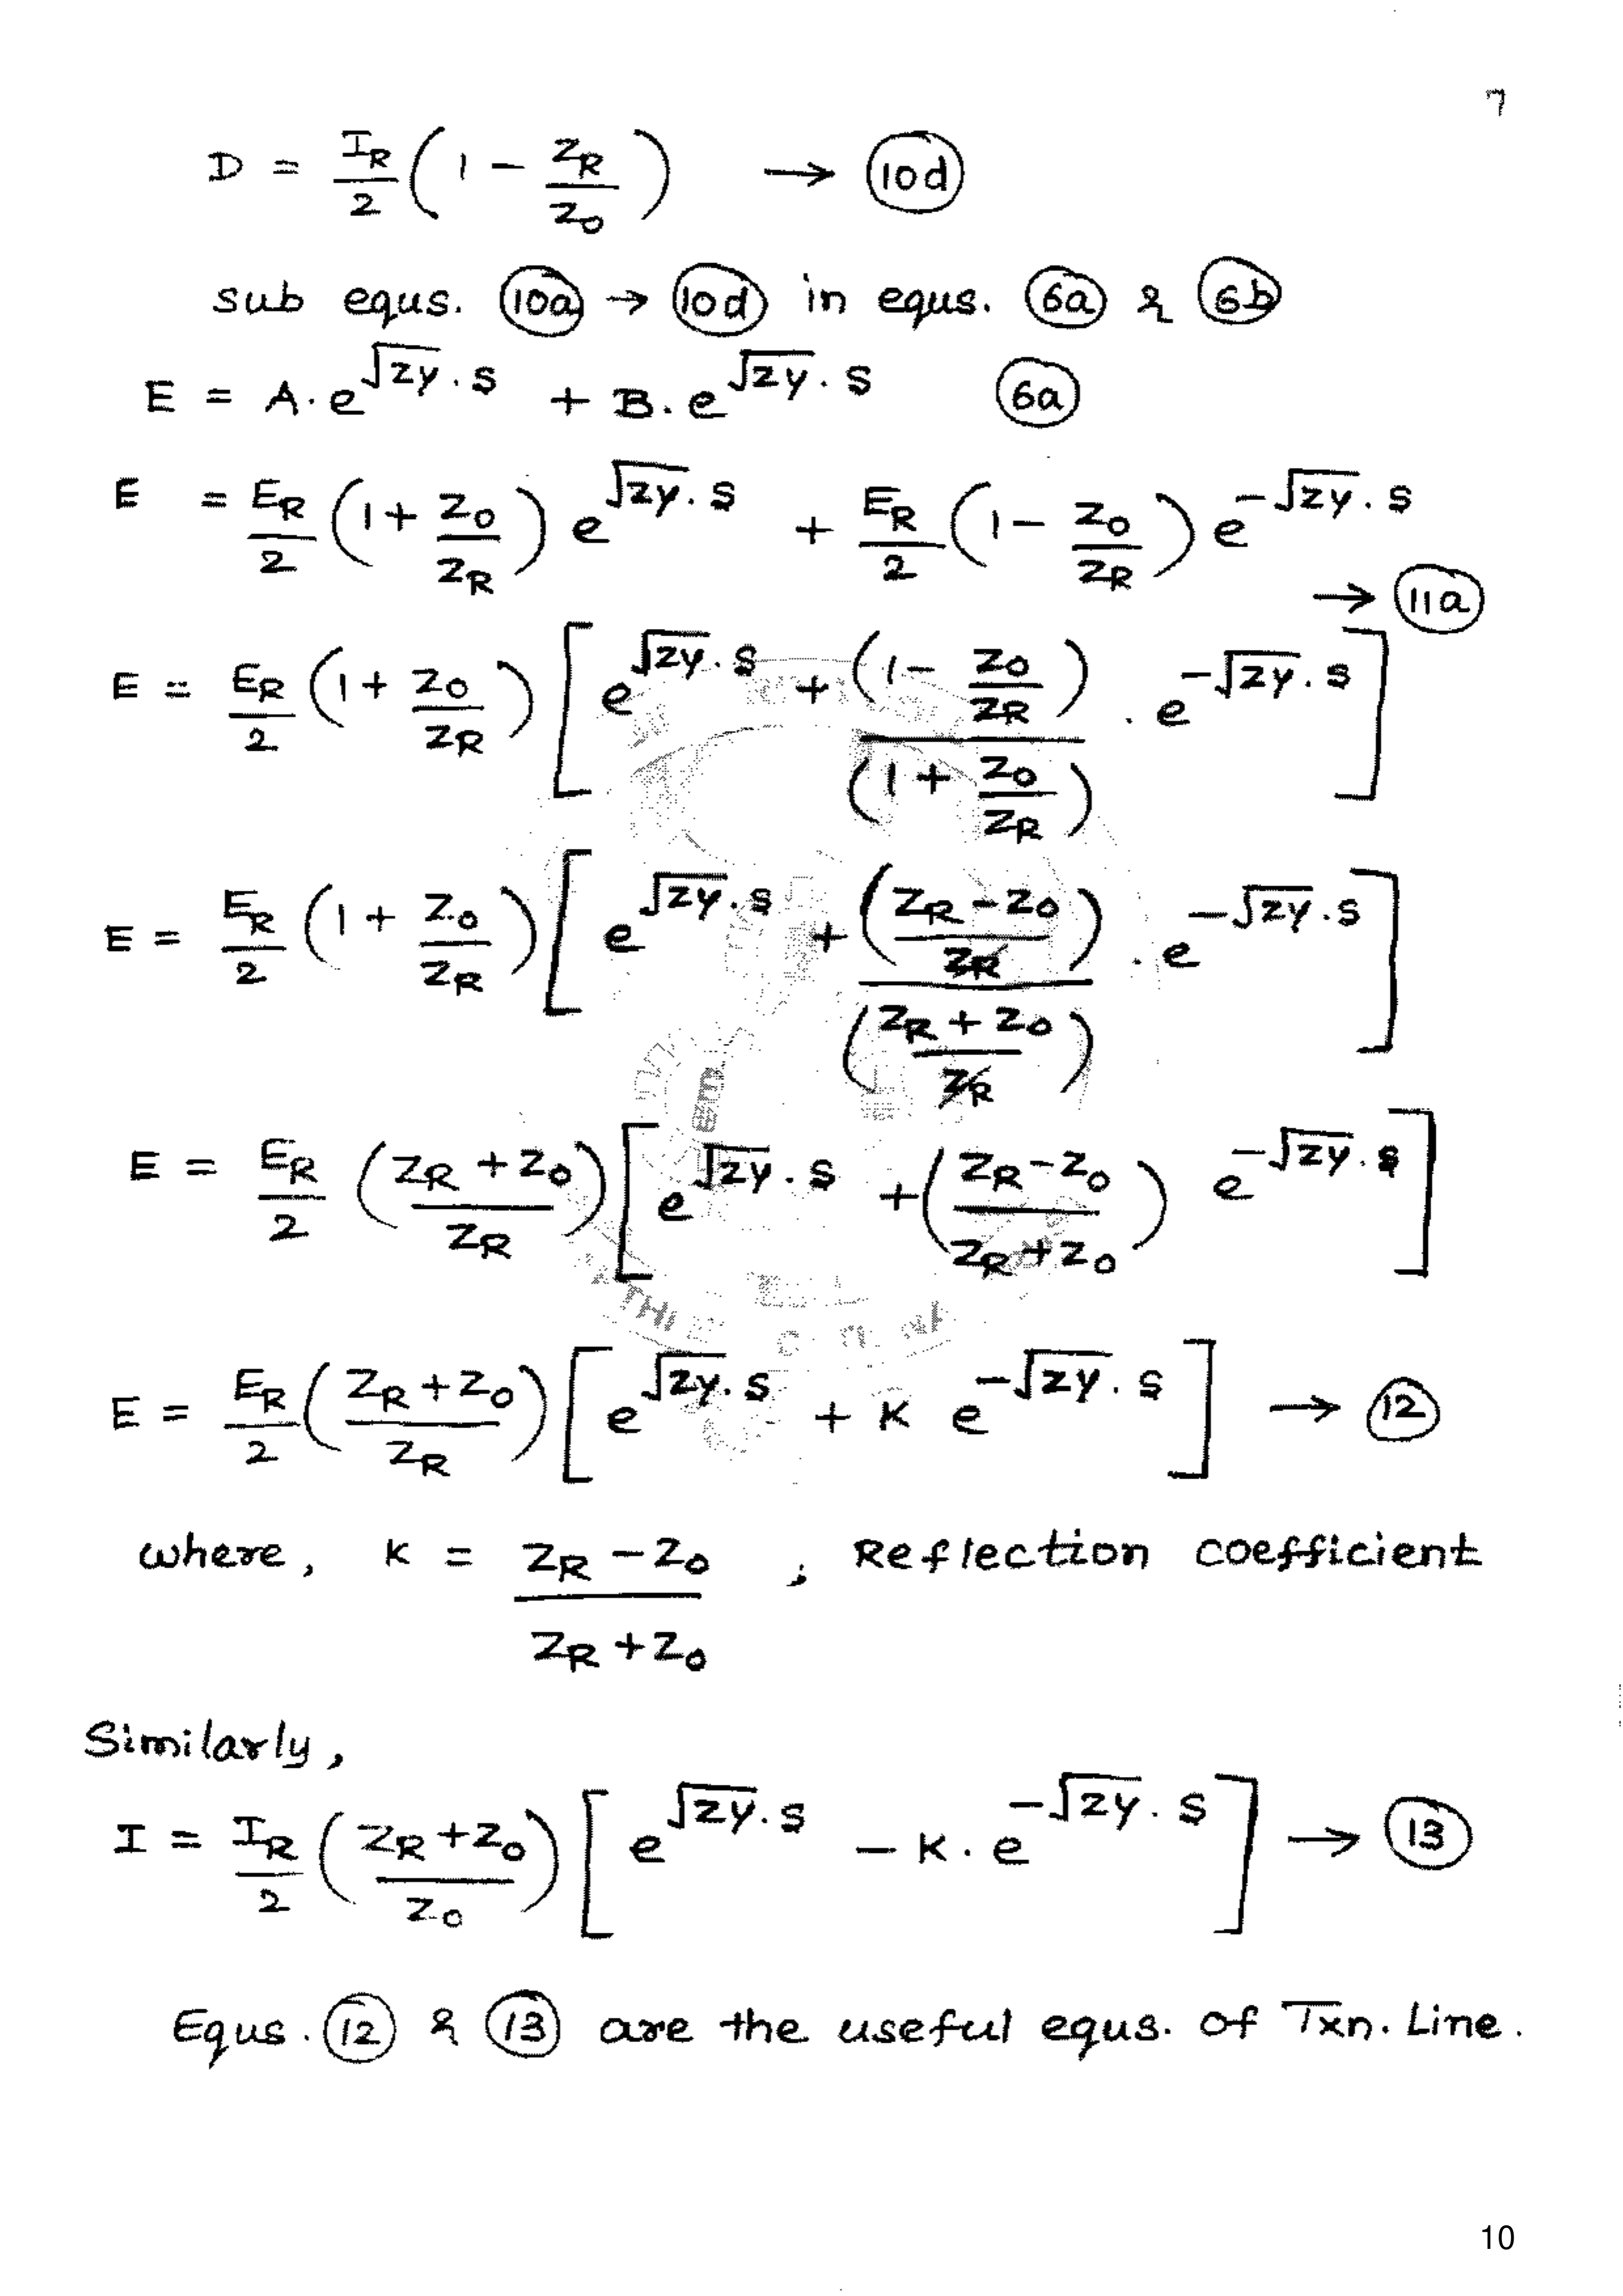 7
D = I_R/2 (1 - Z_R/Z_0) → (10d)
sub equs. (10a) → (10d) in equs. (6a) & (6b)
E = A.e^{√zy.s} + B.e^{√zy.s} (6a)
E = E_R/2 (1 + Z_0/Z_R) e^{√zy.s} + E_R/2 (1 - Z_0/Z_R) e^{-√zy.s}
→ (11a)
E = E_R/2 (1 + Z_0/Z_R) [ e^{√zy.s} + (1 - Z_0/Z_R)/(1 + Z_0/Z_R) . e^{-√zy.s} ]
E = E_R/2 (1 + Z_0/Z_R) [ e^{√zy.s} + ((Z_R - Z_0)/Z_R)/((Z_R + Z_0)/Z_R) . e^{-√zy.s} ]
E = E_R/2 ((Z_R + Z_0)/Z_R) [ e^{√zy.s} + ((Z_R - Z_0)/(Z_R + Z_0)) e^{-√zy.s} ]
E = E_R/2 ((Z_R + Z_0)/Z_R) [ e^{√zy.s} + K e^{-√zy.s} ] → (12)
where, K = (Z_R - Z_0)/(Z_R + Z_0) ; Reflection coefficient
Similarly,
I = I_R/2 ((Z_R + Z_0)/Z_0) [ e^{√zy.s} - K.e^{-√zy.s} ] → (13)
Equs. (12) & (13) are the useful equs. of Txn. Line.
10